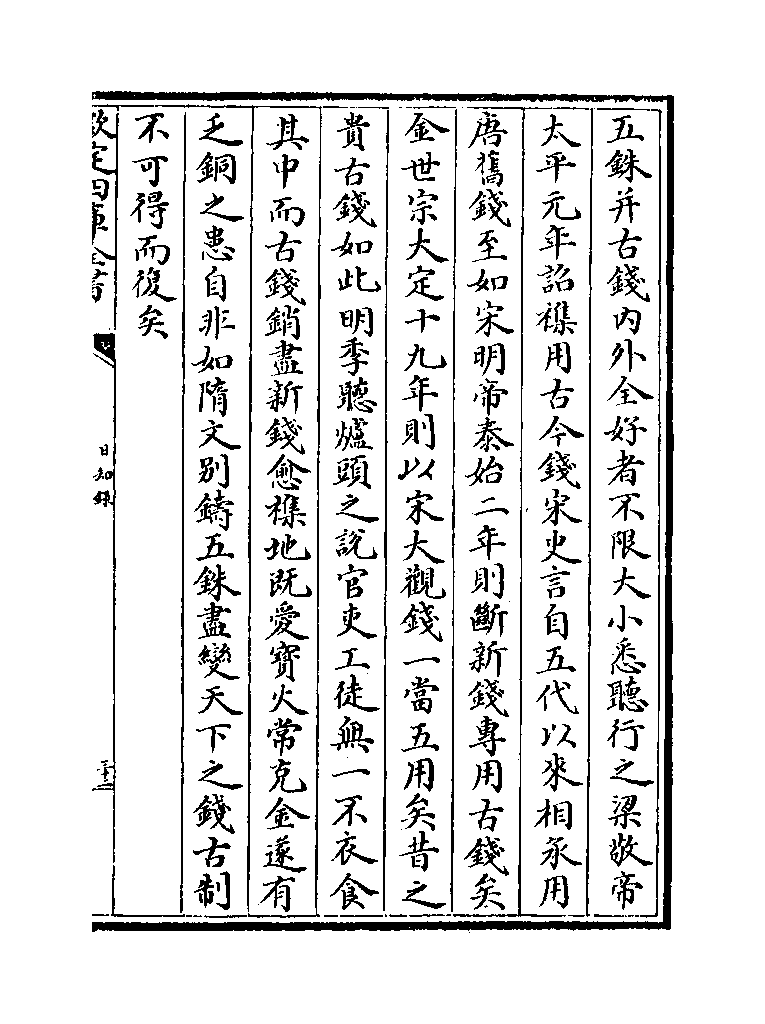 五銖并古錢内外全好者不限大小悉聽行之梁敬帝
太平元年詔襍用古今錢宋史言自五代以來相承用
唐舊錢至如宋明帝泰始二年則斷新錢專用古錢矣
金世宗大定十九年則以宋大觀錢一當五用矣昔之
貴古錢如此明季聽爐頭之說官吏工徒無一不衣食
其中而古錢銷盡新錢愈襍地既愛寶火常克金遂有
乏銅之患自非如隋文别鑄五銖盡變天下之錢古制
不可得而復矣
欽定四庫全書
日知錄